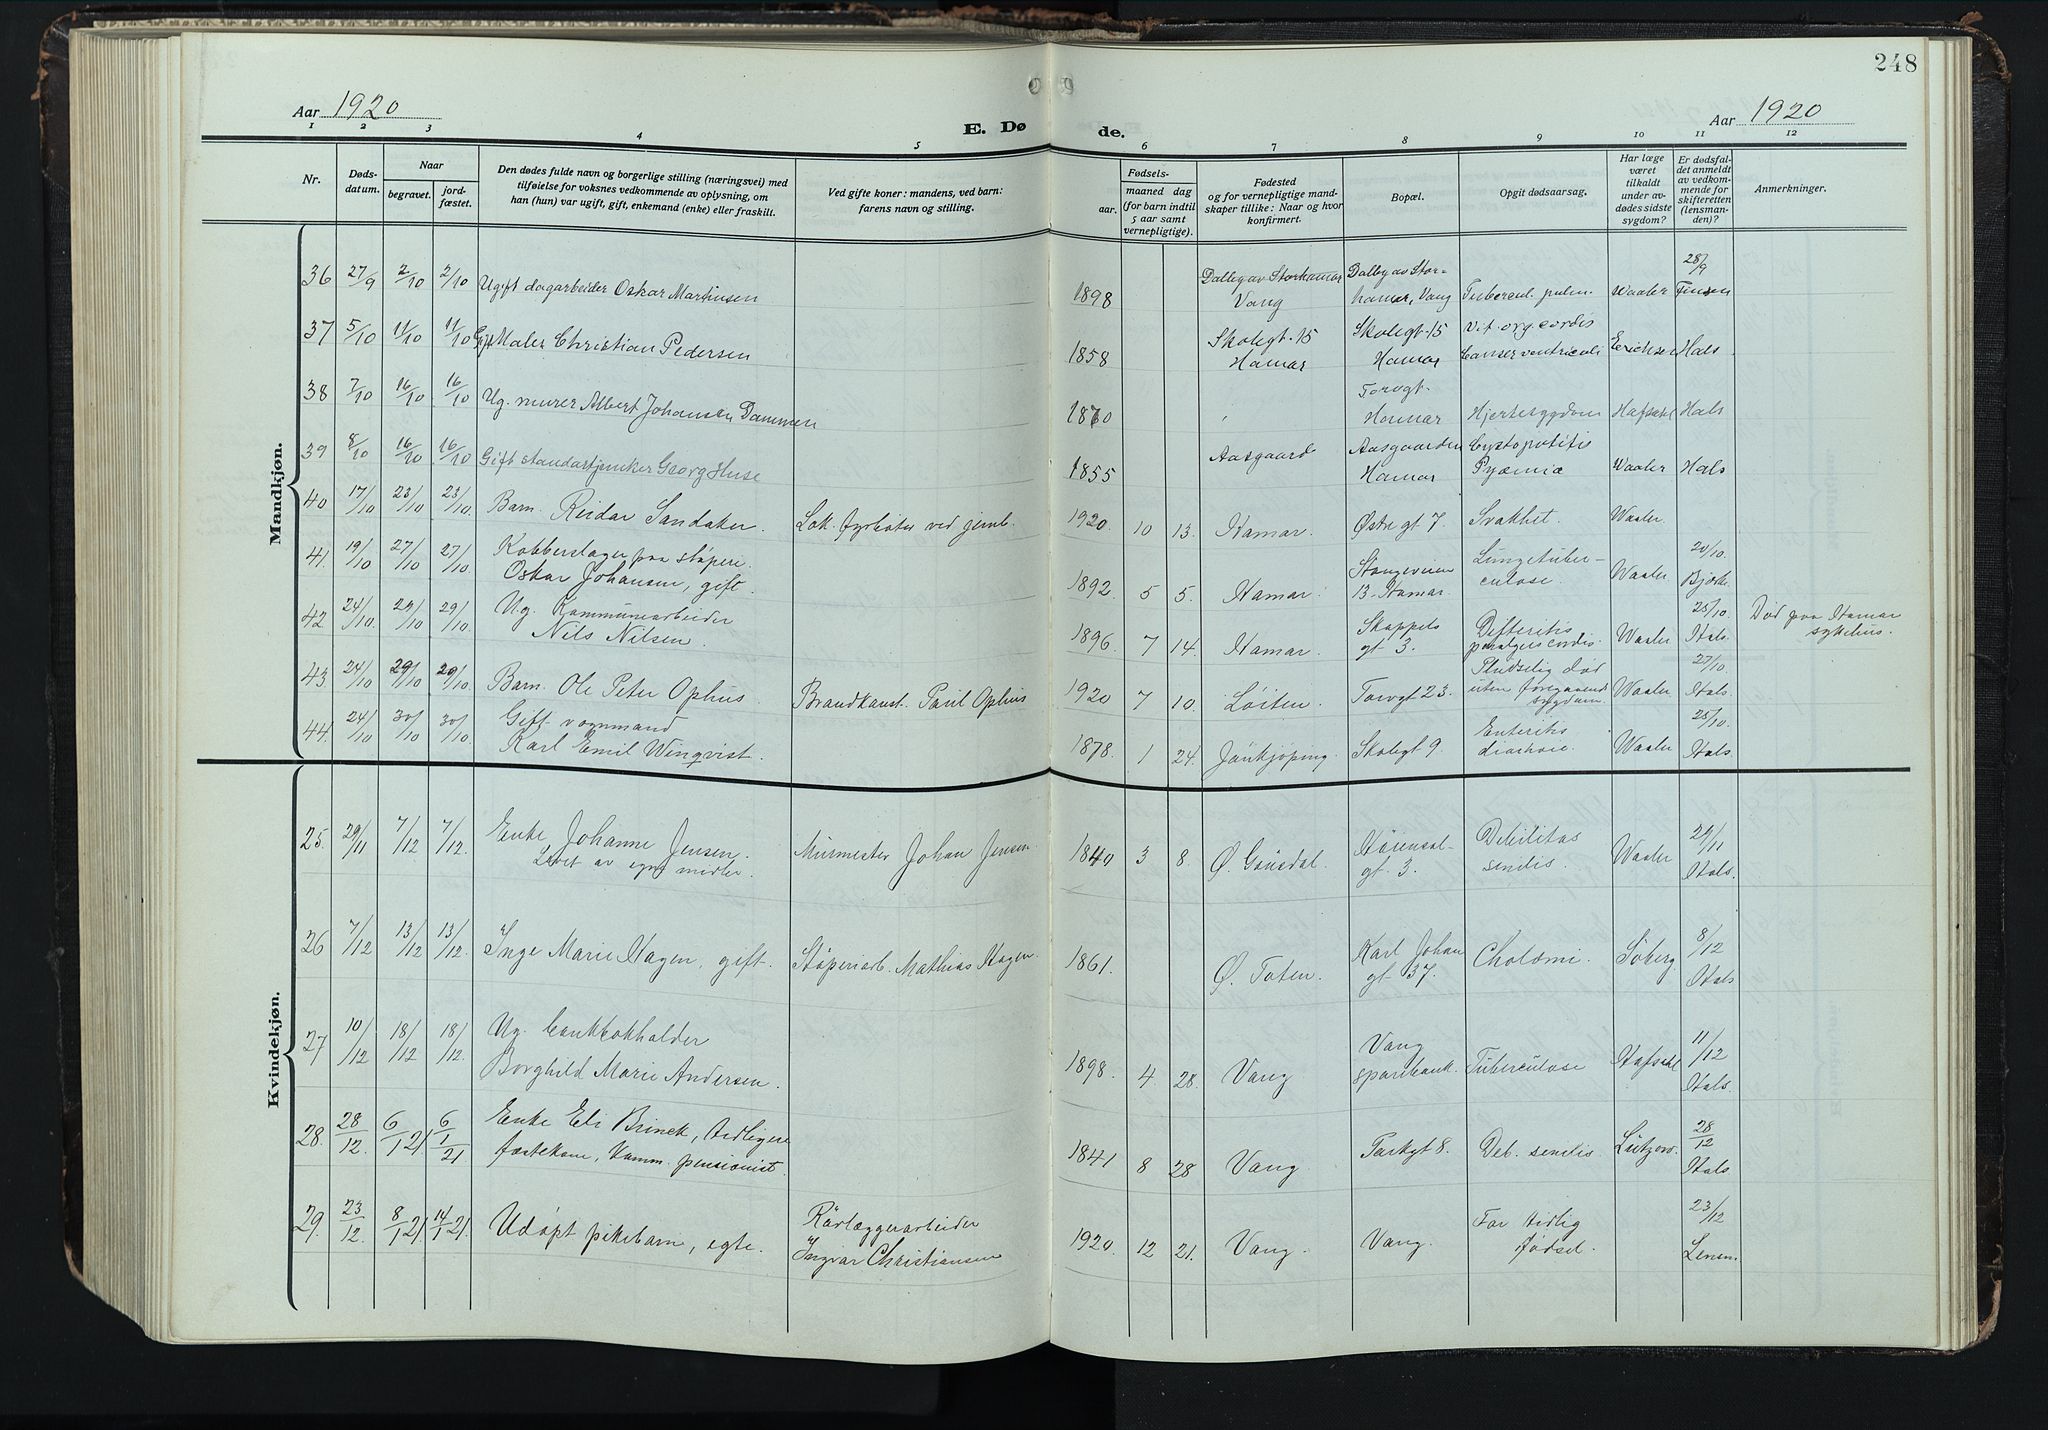 248
Aar 1920
E. Dø de.
Aar 1920
1 2 3 4 5 6 7 8 9 10 11 12
Nr.
Dødsdatum.
Naar
begravet.
jordfæstet.
Den dødes fulde navn og borgerlige stilling (næringsvei) med
tilføielse for voksnes vedkommende av oplysning, om
han (hun) var ugift, gift, enkemand (enke) eller fraskilt.
Ved gifte koner: mandens, ved barn:
farens navn og stilling.
Fødsels-
aar.
maaned dag
(for barn indtil
5 aar samt
vernepligtige).
Fødested
og for vernepligtige mand-
skaper tillike: Naar og hvor
konfirmert.
Bopæl.
Opgit dødsaarsag.
Har læge
været
tilkaldt
under av-
dødes sidste
sygdom?
Er dødsfal-
det anmeldt
av vedkom-
mende for
skifteretten
(lensman-
den)?
Anmerkninger.
Mandkjøn.
36 27/9 2/10 2/10 Ugift dagarbeider Oskar Martinsen 1898 Dalby av Storhamar Vang Dalby av Storhamar, Vang Tubercul. pulm. Waaler 28/9 Finsen
37 5/10 11/10 11/10 Gift Maler Christian Pedersen 1858 Skolegt. 15 Hamar Skolegt. 15 Hamar Vit. org. cordis Canser ventriculi Erichsen Hals
38 7/10 16/10 16/10 Ug. murer Albert Johansen Dammen 1870 Torvgt. Hamar Hjertesygdom Hafsahl Hals
39 8/10 16/10 16/10 Gift standartjunker Georg Huse 1855 Aasgaard Aasgaarden Hamar Pyæmia Waaler Hals
40 17/10 23/10 23/10 Barn. Reidar Sandaker. Lok. fyrbøter ved jernb. 1920. 10 13. Hamar. Østre gt 7. Svakhet. Waaler.
41. 19/10 27/10 27/10 Kobberslager paa støperi Oskar Johansen, gift. 1892. 5 5. Hamar. Stangeveien 13. Hamar. Lungetuberculose. Waaler. 20/10. Bjerke.
42 24/10. 29/10. 29/10. Ug. Kommunearbeider Nils Nilsen. 1896 7 14. Hamar. Skappels gt 3. Difteritis paralysis cordis. Waaler 25/10. Hals. Død paa Hamar sykehus.
43. 24/10 29/10 29/10. Barn. Ole Peter Ophus. Brandkonst. Paul Ophus 1920 7 10. Løiten. Torvgt 23. Pludselig død uten foregaaende sygdom. Waaler 27/10 Hals.
44. 24/10 30/10 30/10. Gift vognmand Karl Emil Winqvist. 1878. 1 24. Jönköping. Skolegt 9. Enteritis diarhoie. Waaler 25/10. Hals.
Kvindekjøn.
25. 29/11 7/12 7/12. Enke Johanne Jensen. Levet av egne midler. Murmester Johan Jensen. 1840 3 8. Ø. Gausdal. Grønnegt. 3. Debilitas senilis. Waaler 29/11 Hals.
26 7/12 13/12 13/12. Inge Marie Hagen, gift. Støperiarb. Mathias Hagen. 1861. Ø. Toten. Karl Johan gt 37. Cholæmi. Soberg. 8/12 Hals
27 10/12 18/12 18/12. Ug. bankbokholder Borghild Marie Andersen. 1898. 4 28. Vang Vang sparebank. Tuberculose Hafsahl 11/12 Hals.
28. 28/12. 6/1 21 6/1 21 Enke Eli Brinck, tidligere fæstekone, komm. pensionist. 1841 8 28 Vang Parkgt 8. Deb. senilis. Lützow. 28/12 Hals.
29. 23/12. 8/1 21 14/1 21. Udøpt pikebarn, egte. Rørlæggerarbeider Ingvar Christiansen 1920. 12 21. Vang. Vang. For tidlig fødsel. 23/12 Lensm.